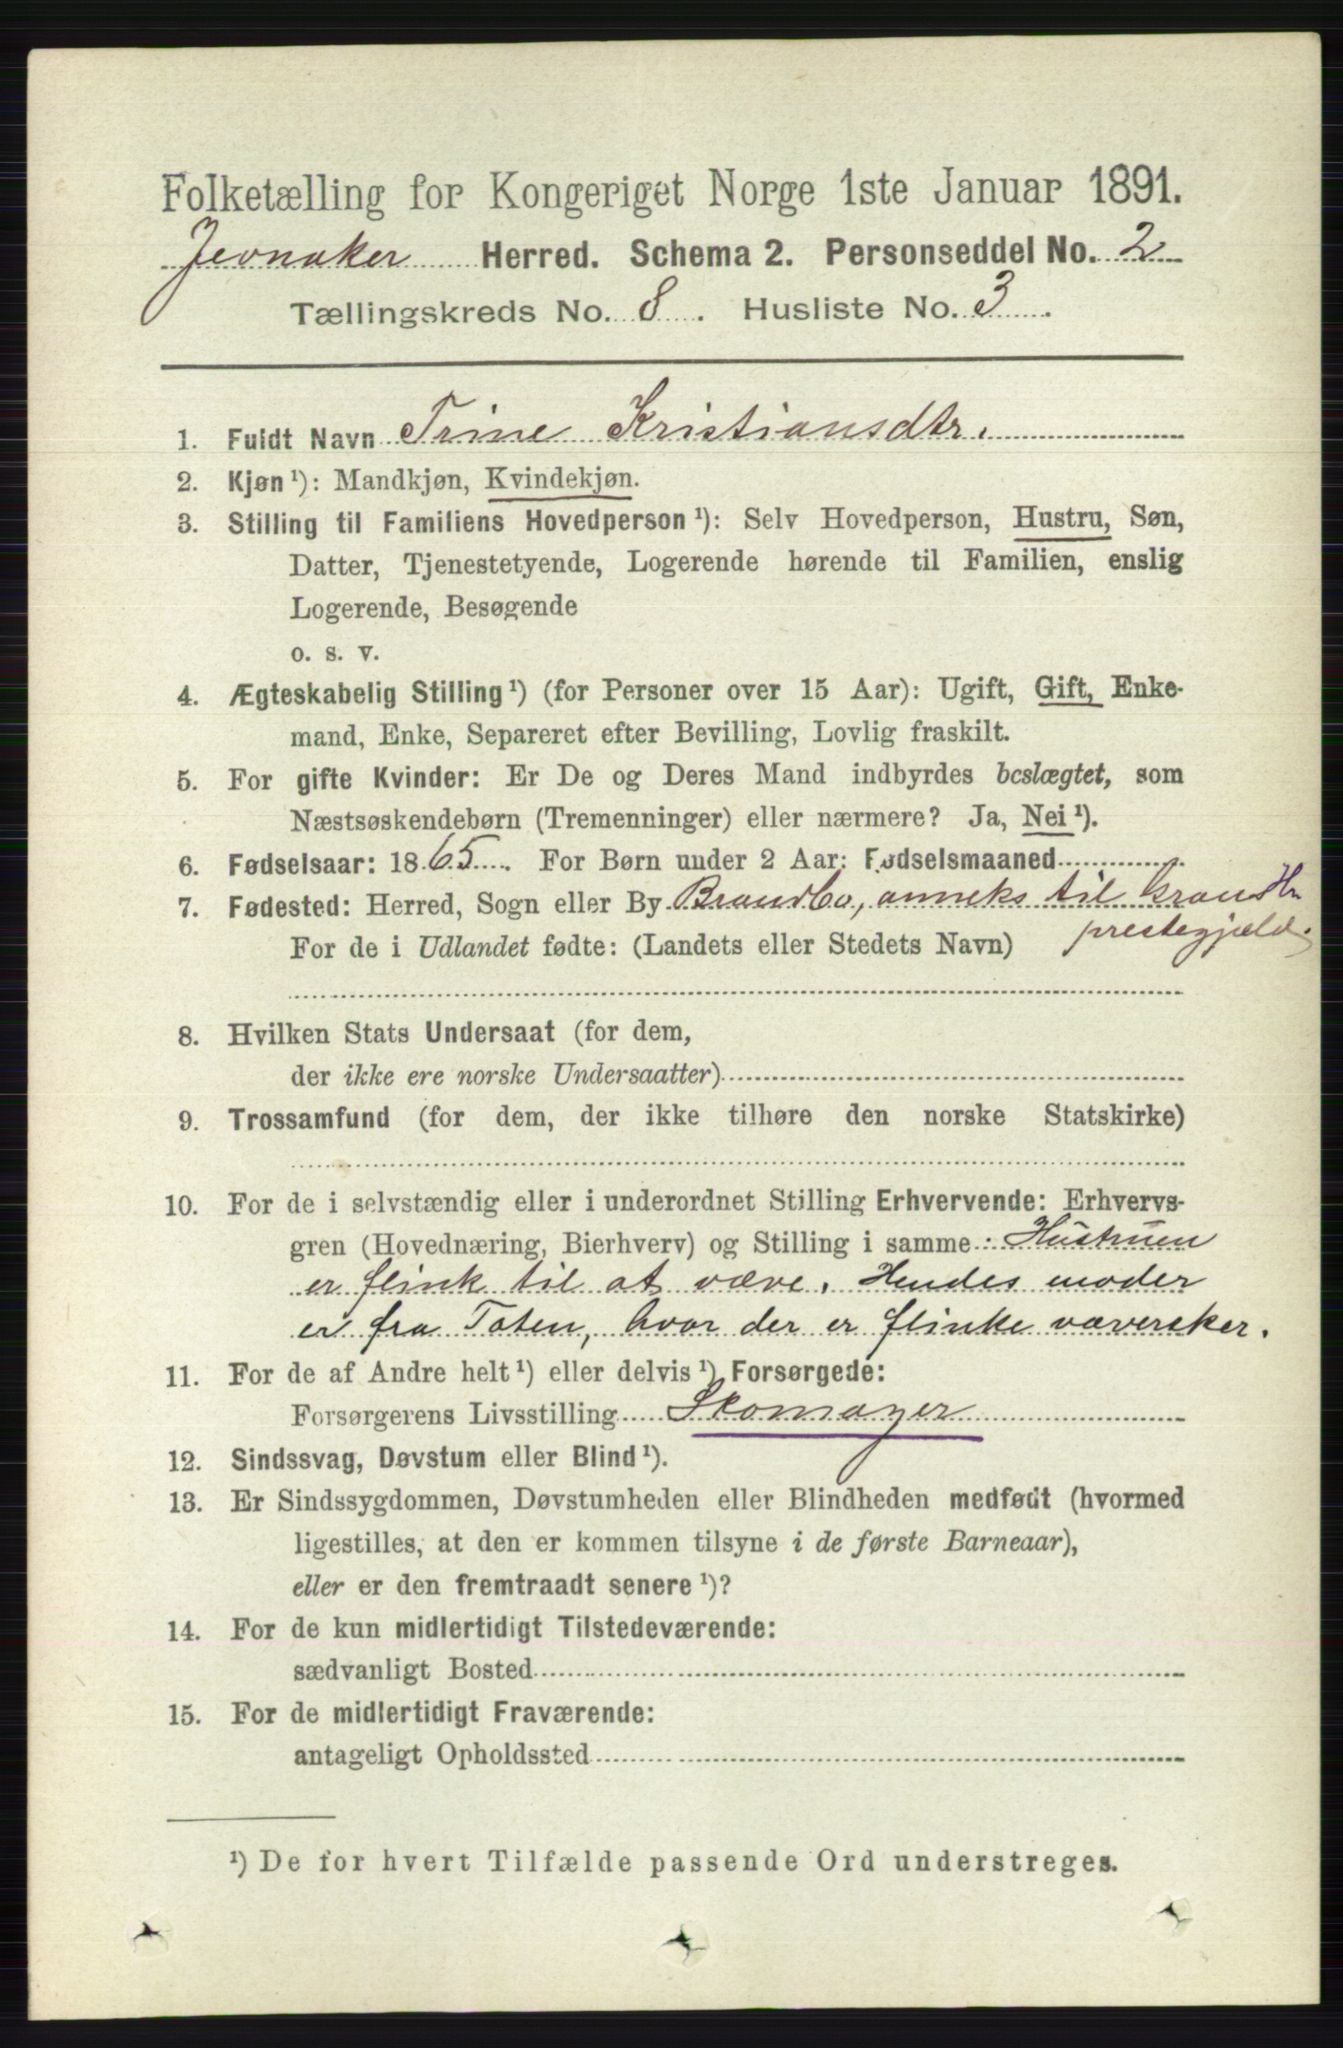 Folketælling for Kongeriget Norge 1ste Januar 1891.
Jevnaker Herred. Schema 2. Personseddel No. 2
Tællingskreds No. 8. Husliste No. 3.
1. Fuldt Navn Trine Kristiansdtr.
2. Kjøn ¹): Mandkjøn, Kvindekjøn.
3. Stilling til Familiens Hovedperson ¹): Selv Hovedperson, Hustru, Søn,
Datter, Tjenestetyende, Logerende hørende til Familien, enslig
Logerende, Besøgende
o. s. v.
4. Ægteskabelig Stilling ¹) (for Personer over 15 Aar): Ugift, Gift, Enke-
mand, Enke, Separeret efter Bevilling, Lovlig fraskilt.
5. For gifte Kvinder: Er De og Deres Mand indbyrdes beslægtet, som
Næstsøskendebørn (Tremenninger) eller nærmere? Ja, Nei ¹).
6. Fødselsaar: 1865. For Børn under 2 Aar: Fødselsmaaned
7. Fødested: Herred, Sogn eller By Brandbo, anneks til Grans Hr
For de i Udlandet fødte: (Landets eller Stedets Navn) prestegjæld.
8. Hvilken Stats Undersaat (for dem,
der ikke ere norske Undersaatter)
9. Trossamfund (for dem, der ikke tilhøre den norske Statskirke)
10. For de i selvstændig eller i underordnet Stilling Erhvervende: Erhvervs-
gren (Hovednæring, Bierhverv) og Stilling i samme: Hustruen
er flink til at væve. Hendes moder
er fra Toten, hvor der er flinke væversker.
11. For de af Andre helt ¹) eller delvis ¹) Forsørgede:
Forsørgerens Livsstilling Skomager
12. Sindssvag, Døvstum eller Blind ¹).
13. Er Sindssygdommen, Døvstumheden eller Blindheden medfødt (hvormed
ligestilles, at den er kommen tilsyne i de første Barneaar),
eller er den fremtraadt senere ¹)?
14. For de kun midlertidigt Tilstedeværende:
sædvanligt Bosted
15. For de midlertidigt Fraværende:
antageligt Opholdssted
¹) De for hvert Tilfælde passende Ord understreges.